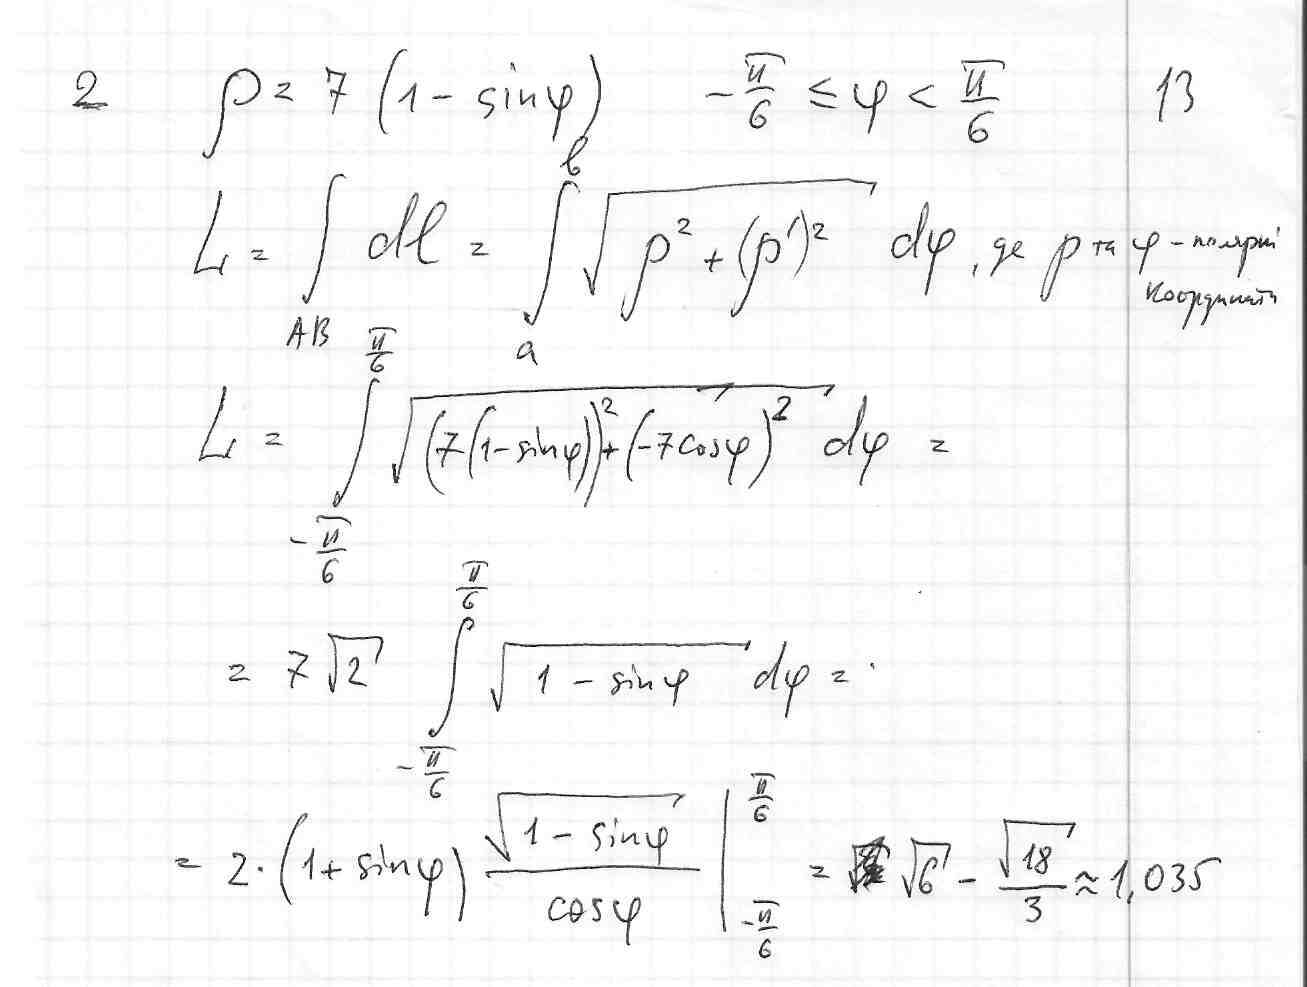 2 ρ = 7 (1 - sinφ) -π/6 ≤ φ < π/6 13
L = ∫_{AB} dl = ∫_a^b √(ρ² + (ρ')²) dφ, де ρ та φ - полярні
координати
L = ∫_{-π/6}^{π/6} √((7(1-sinφ))² + (-7cosφ)²) dφ =
= 7√2 ∫_{-π/6}^{π/6} √(1 - sinφ) dφ =
= 2·(1 + sinφ) √(1 - sinφ)/cosφ |_{-π/6}^{π/6} = √6 - √18/3 ≈ 1,035